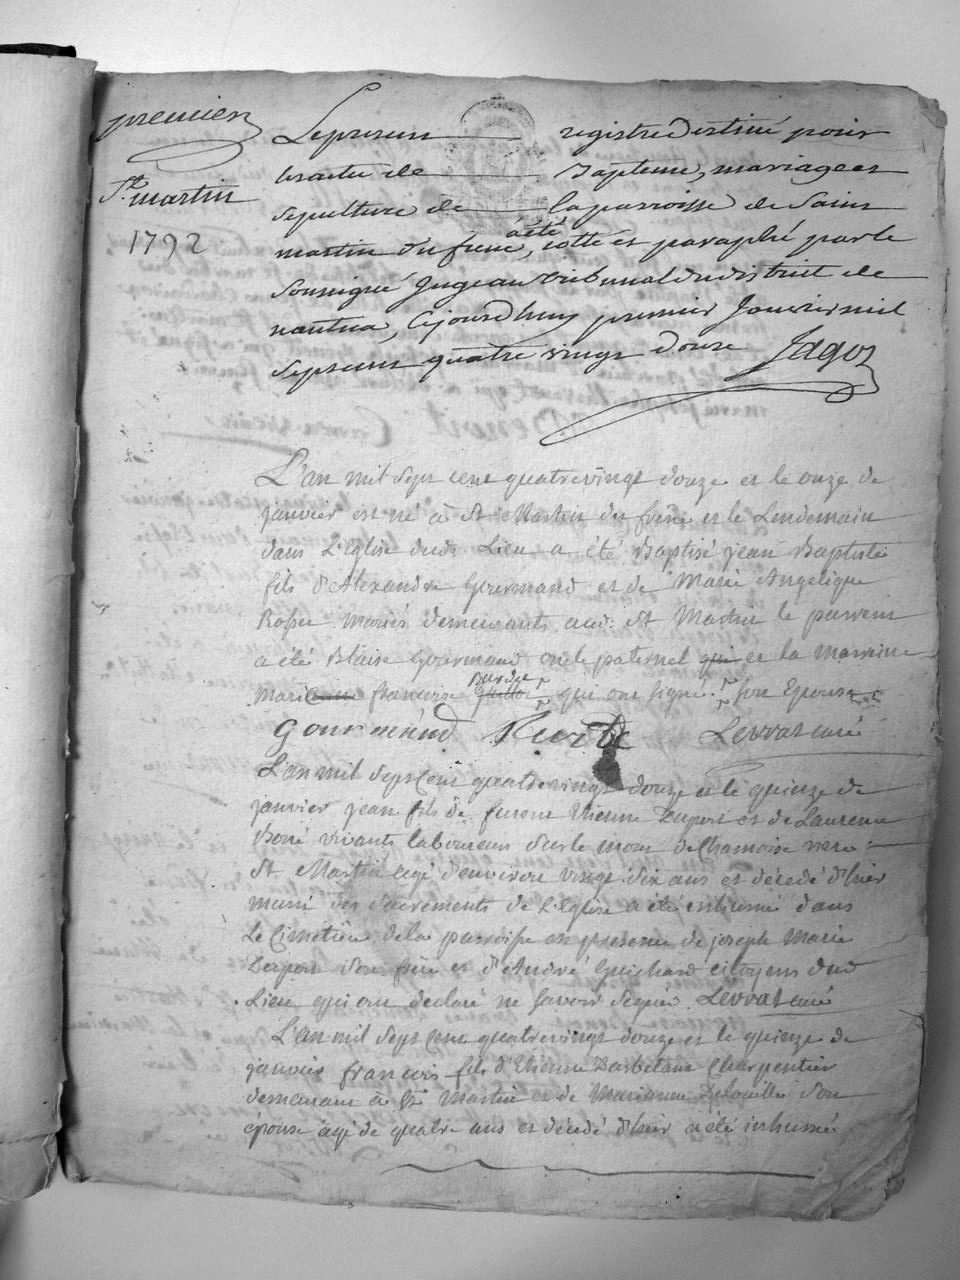 premier
St. martin
1792
Le presens registre destiné pour
bapteme, mariage et
sepulture de la parroisse de Saint
martin du frene, a été cotté et paraphé par le
soussigné juge au tribunal du district de
nantua, cejourdhuy premier Janvier mil
sept cens quatre vingt douse Jagot
L'an mil sept cent quatrevingt douze et le onze de
janvier est né à St Martin du frêne et le Lendemain
dans L'Eglise dud. Lieu a été Baptisé jean Baptiste
fils d'Alexandre Gourmand et de Marie Angelique
mariés demeurants aud. St Martin le parrein
a été Blaise Gourmand oncle paternel qui et la marreine
francoise qui ont signé. son Epouse
Gourmand Levrat curé
L'an mil sept Cent quatrevingt douze et le quinze de
janvier jean fils de Etienne Dupont et de Laurence
vivants laboureurs sur le mont de Chamoise
St Martin agé d'environ vingt dix ans et décedé d'hier
muni des Sacrements de L'Eglise a été inhumé dans
Le Cimetiere de la paroisse en presence de joseph Marie
Dupont son frère et d'André Guichard citoyens dud
Lieu qui ont declaré ne savoir signer Levrat curé
L'an mil sept Cent quatrevingt douze et le quinze de
janvier francois fils d'Etienne Charpentier
demeurant à St Martin et de Marianne son
épouse agé de quatre ans et décedé d'hier a été inhumé